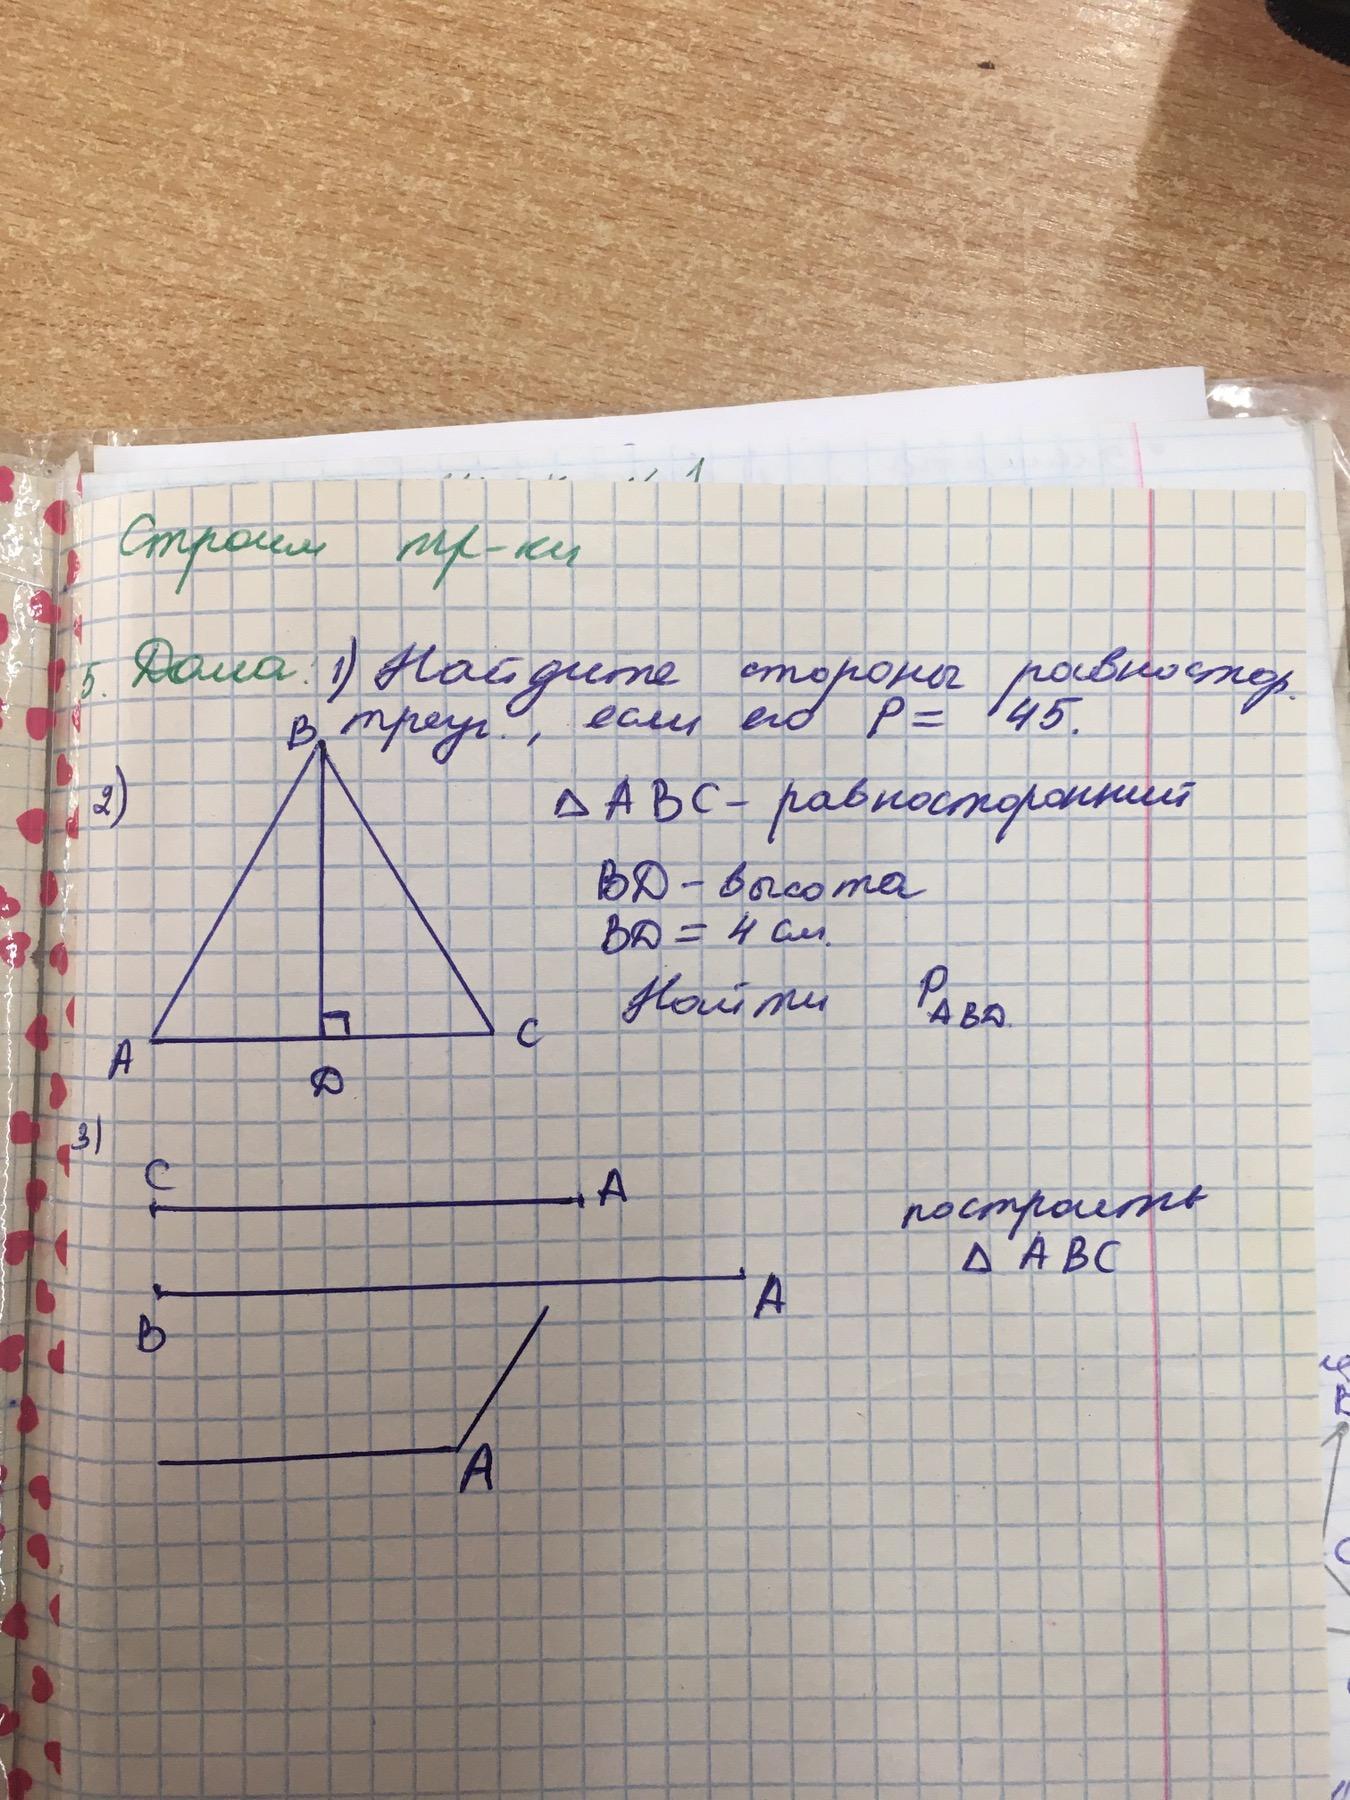 Строим тр-ки
5. Дома: 1) Найдите стороны равностор.
треуг., если его P = 45.
2)
B
A
D
C
△ ABC - равносторонний
BD - высота
BD = 4 см.
Найти P ABD.
3)
C A
B A
A
построить
△ ABC
B
C